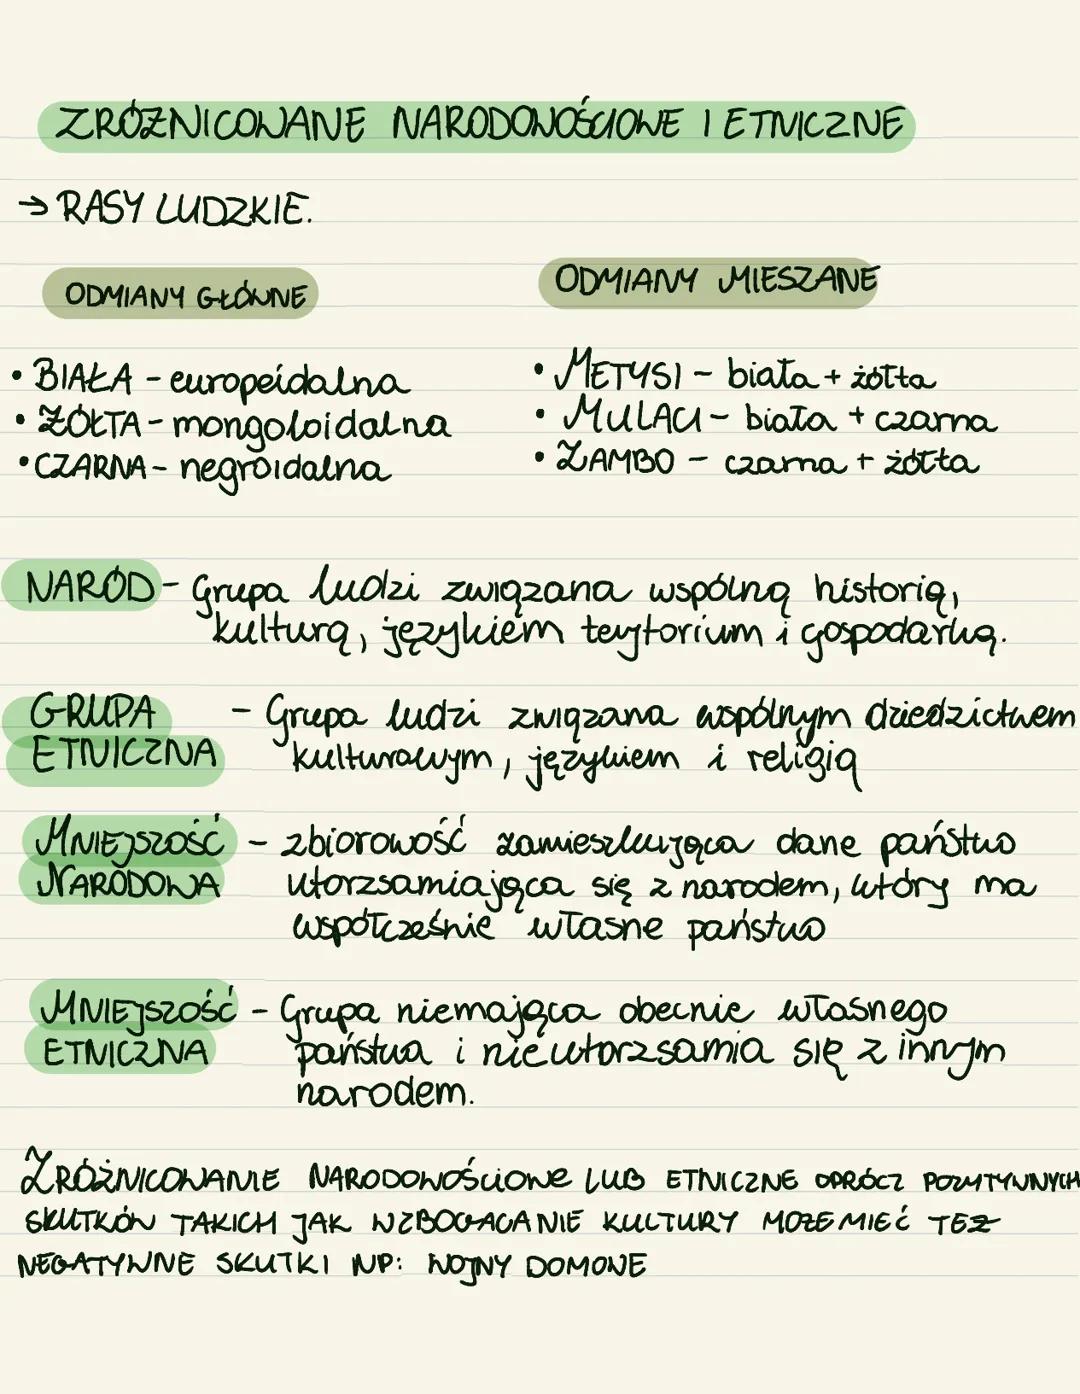 ZRÓŻNICOWANE NARODOWOŚCIOWE I ETNICZNE
→ RASY LUDZKIE.
ODMIANY GŁÓWNE
• BIAŁA - europeidalna
• ŻÓŁTA - mongoloidalna
• CZARNA - negroidalna
ODMIANY MIESZANE
• METYSI - biała + żółta
• MULACI - biała + czarna
• ZAMBO - czarna + żółta
NARÓD - Grupa ludzi związana wspólną historią,
kulturą, językiem terytorium i gospodarką.
GRUPA ETNICZNA - Grupa ludzi związana wspólnym dziedzictwem
kulturowym, językiem i religią
MNIEJSZOŚĆ NARODOWA - zbiorowość zamieszkująca dane państwo
utorzsamiająca się z narodem, który ma
współcześnie własne państwo
MNIEJSZOŚĆ ETNICZNA - Grupa niemająca obecnie własnego
państwa i nieutorzsamia się z innym
narodem.
ZRÓŻNICOWANIE NARODOWOŚCIOWE LUB ETNICZNE OPRÓCZ POZYTYWNYCH
SKUTKÓW TAKICH JAK WZBOGACANIE KULTURY MOŻE MIEĆ TEŻ
NEGATYWNE SKUTKI NP: WOJNY DOMOWE